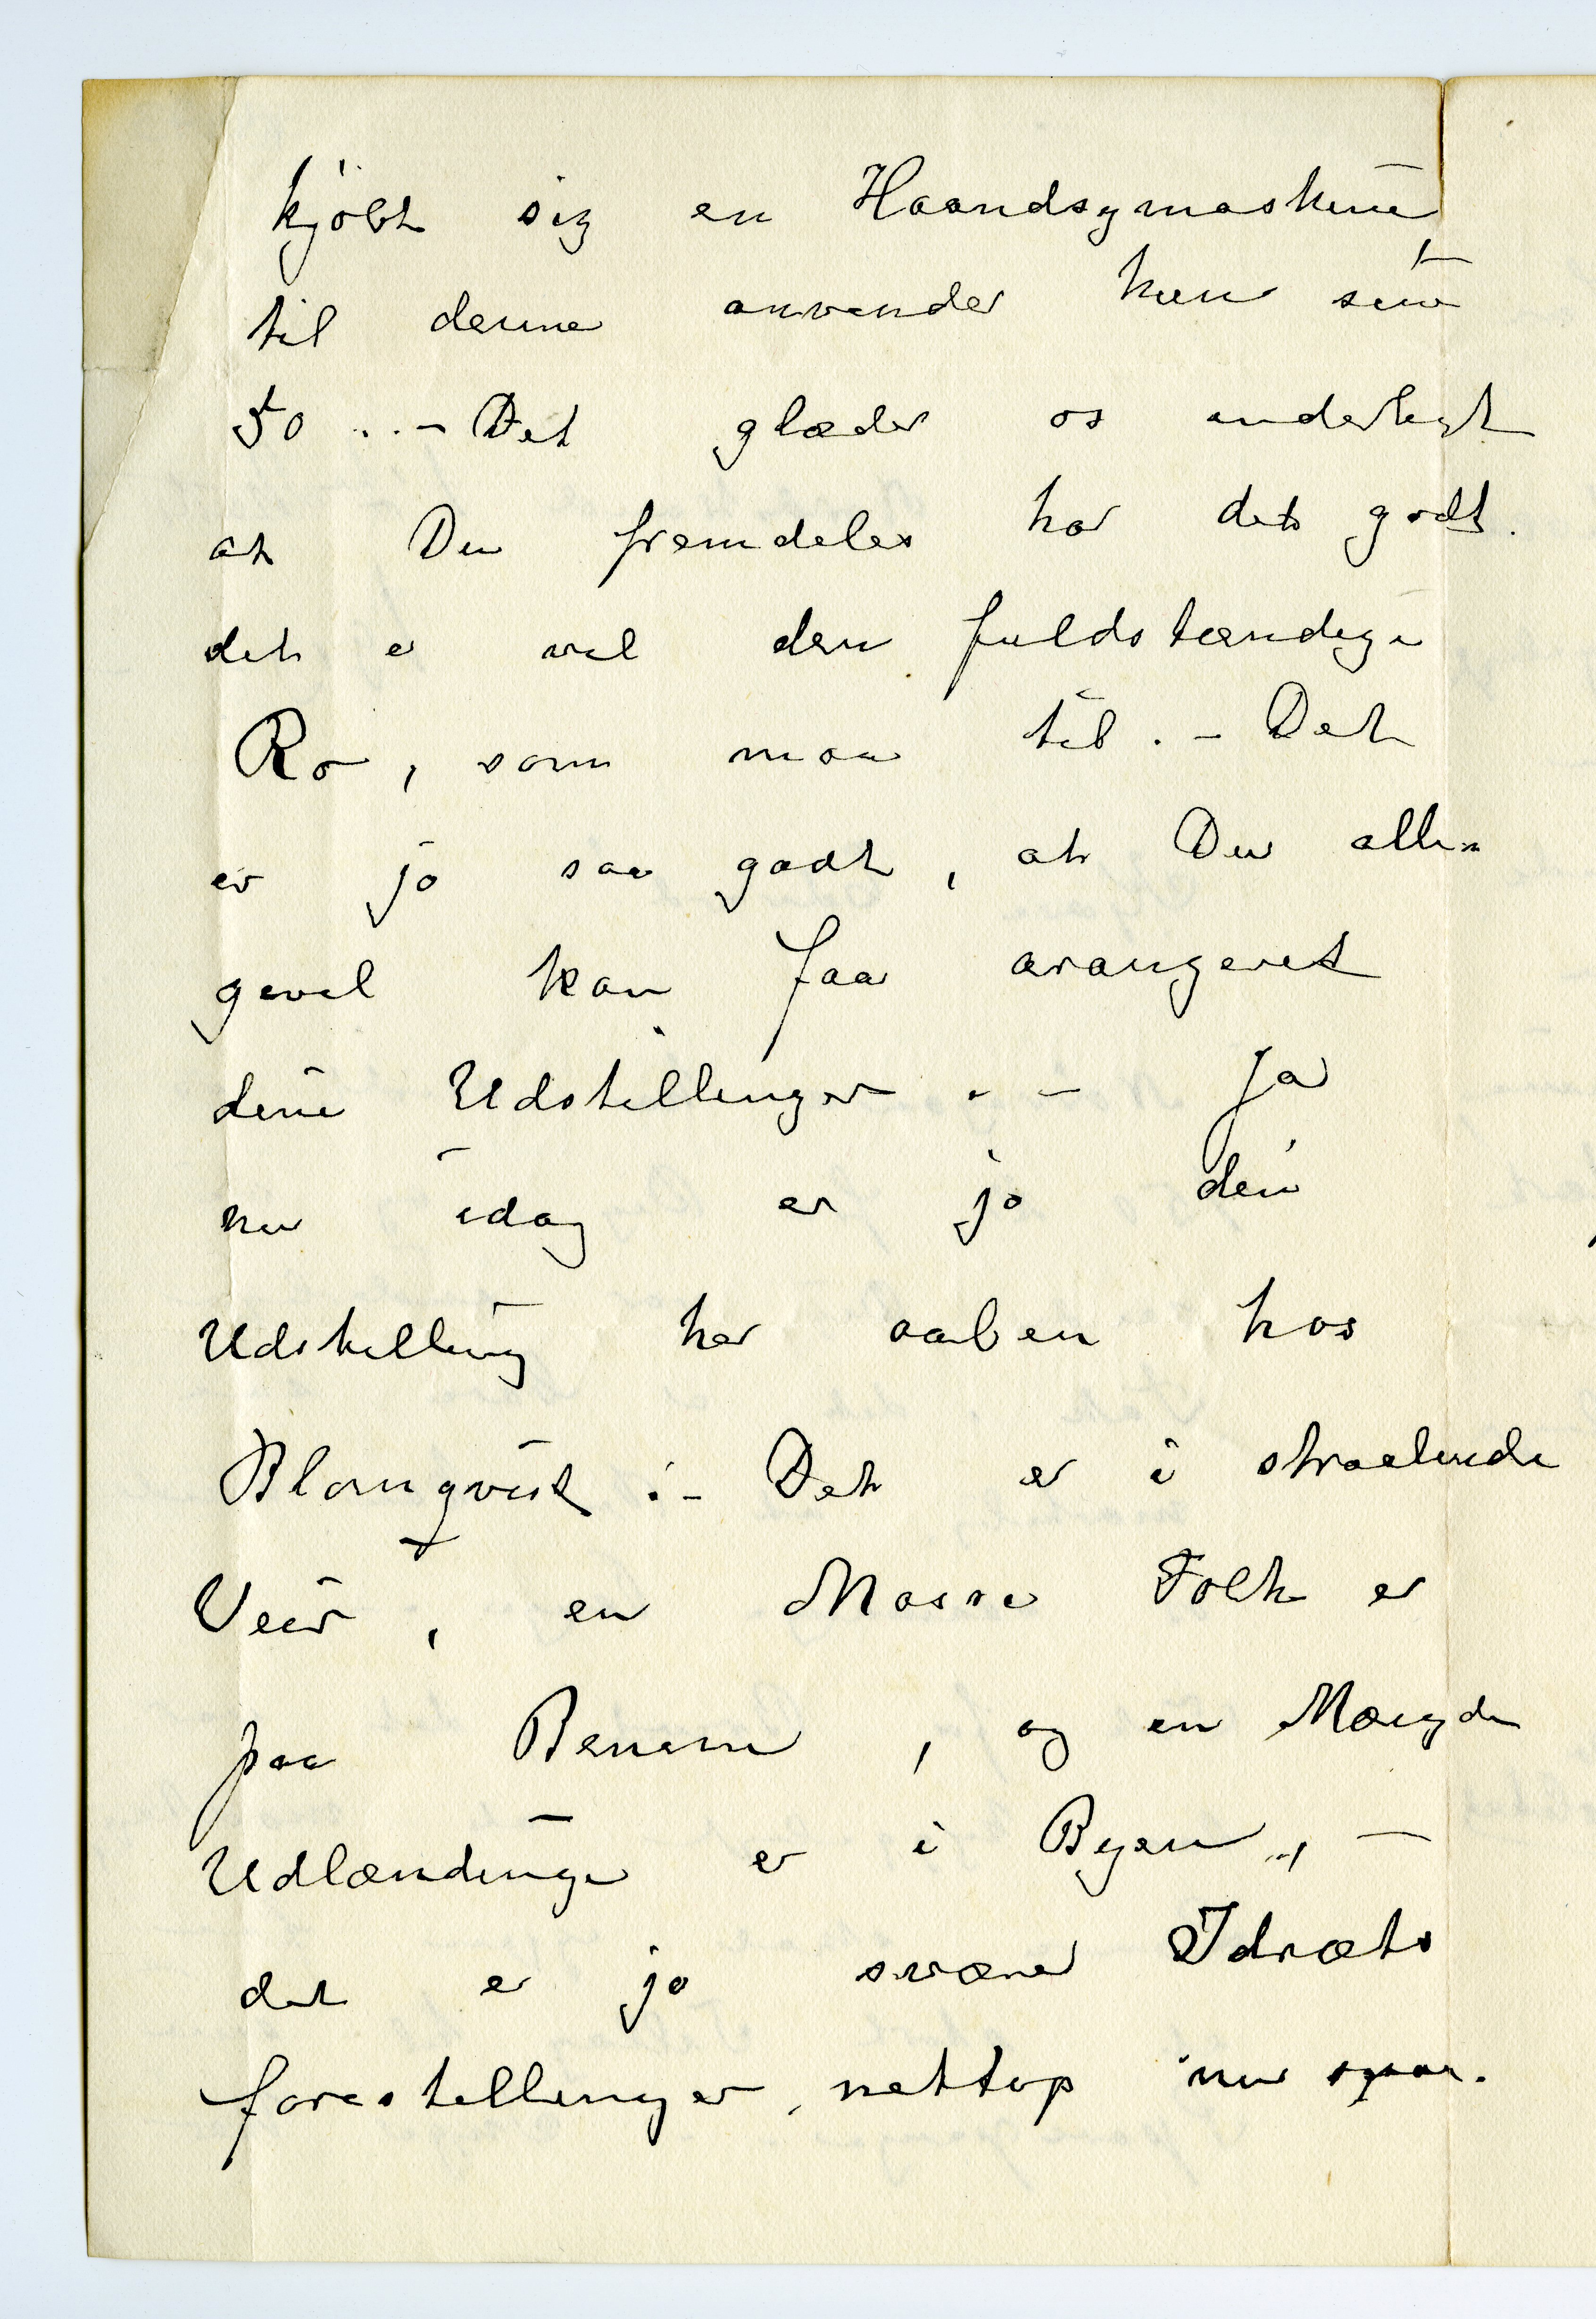 kjöbt sig en Haandsymaskine
til denne anvender hun sine
50 .. – Det glæder os inderligt
at Du fremdeles har det godt.
det er vel den fuldstændige
Ro, som maa til. – Det
er jo saa godt, at Du alli=
gevel kan faa arangeret
dine Udstillinger . – Ja
nu idag er jo din
Udstilling her aaben hos
Blomqvist :– Det er i straalende
Veir, en Masse Folk er
paa Benene, og en Mængde
Udlændinge er i Byen„ –
det er jo svære Idræts
forestillinger, nettop nu